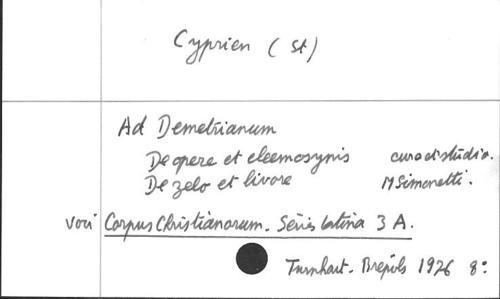 Cyprien (St)
Ad Demetrianum
De opere et eleemosynis cura et studio.
De zelo et livore M Simonetti.
voir Corpus Christianorum. Séries latina 3 A.
Turnhout. Brepols 1976 8: